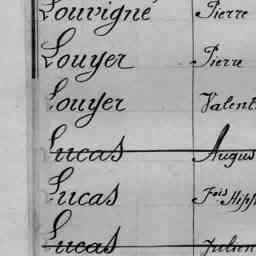 Louvigné Pierre
Louyer Pierre
Louyer Valent
Lucas Augus
Lucas Fois Hipp
Lucas Julien